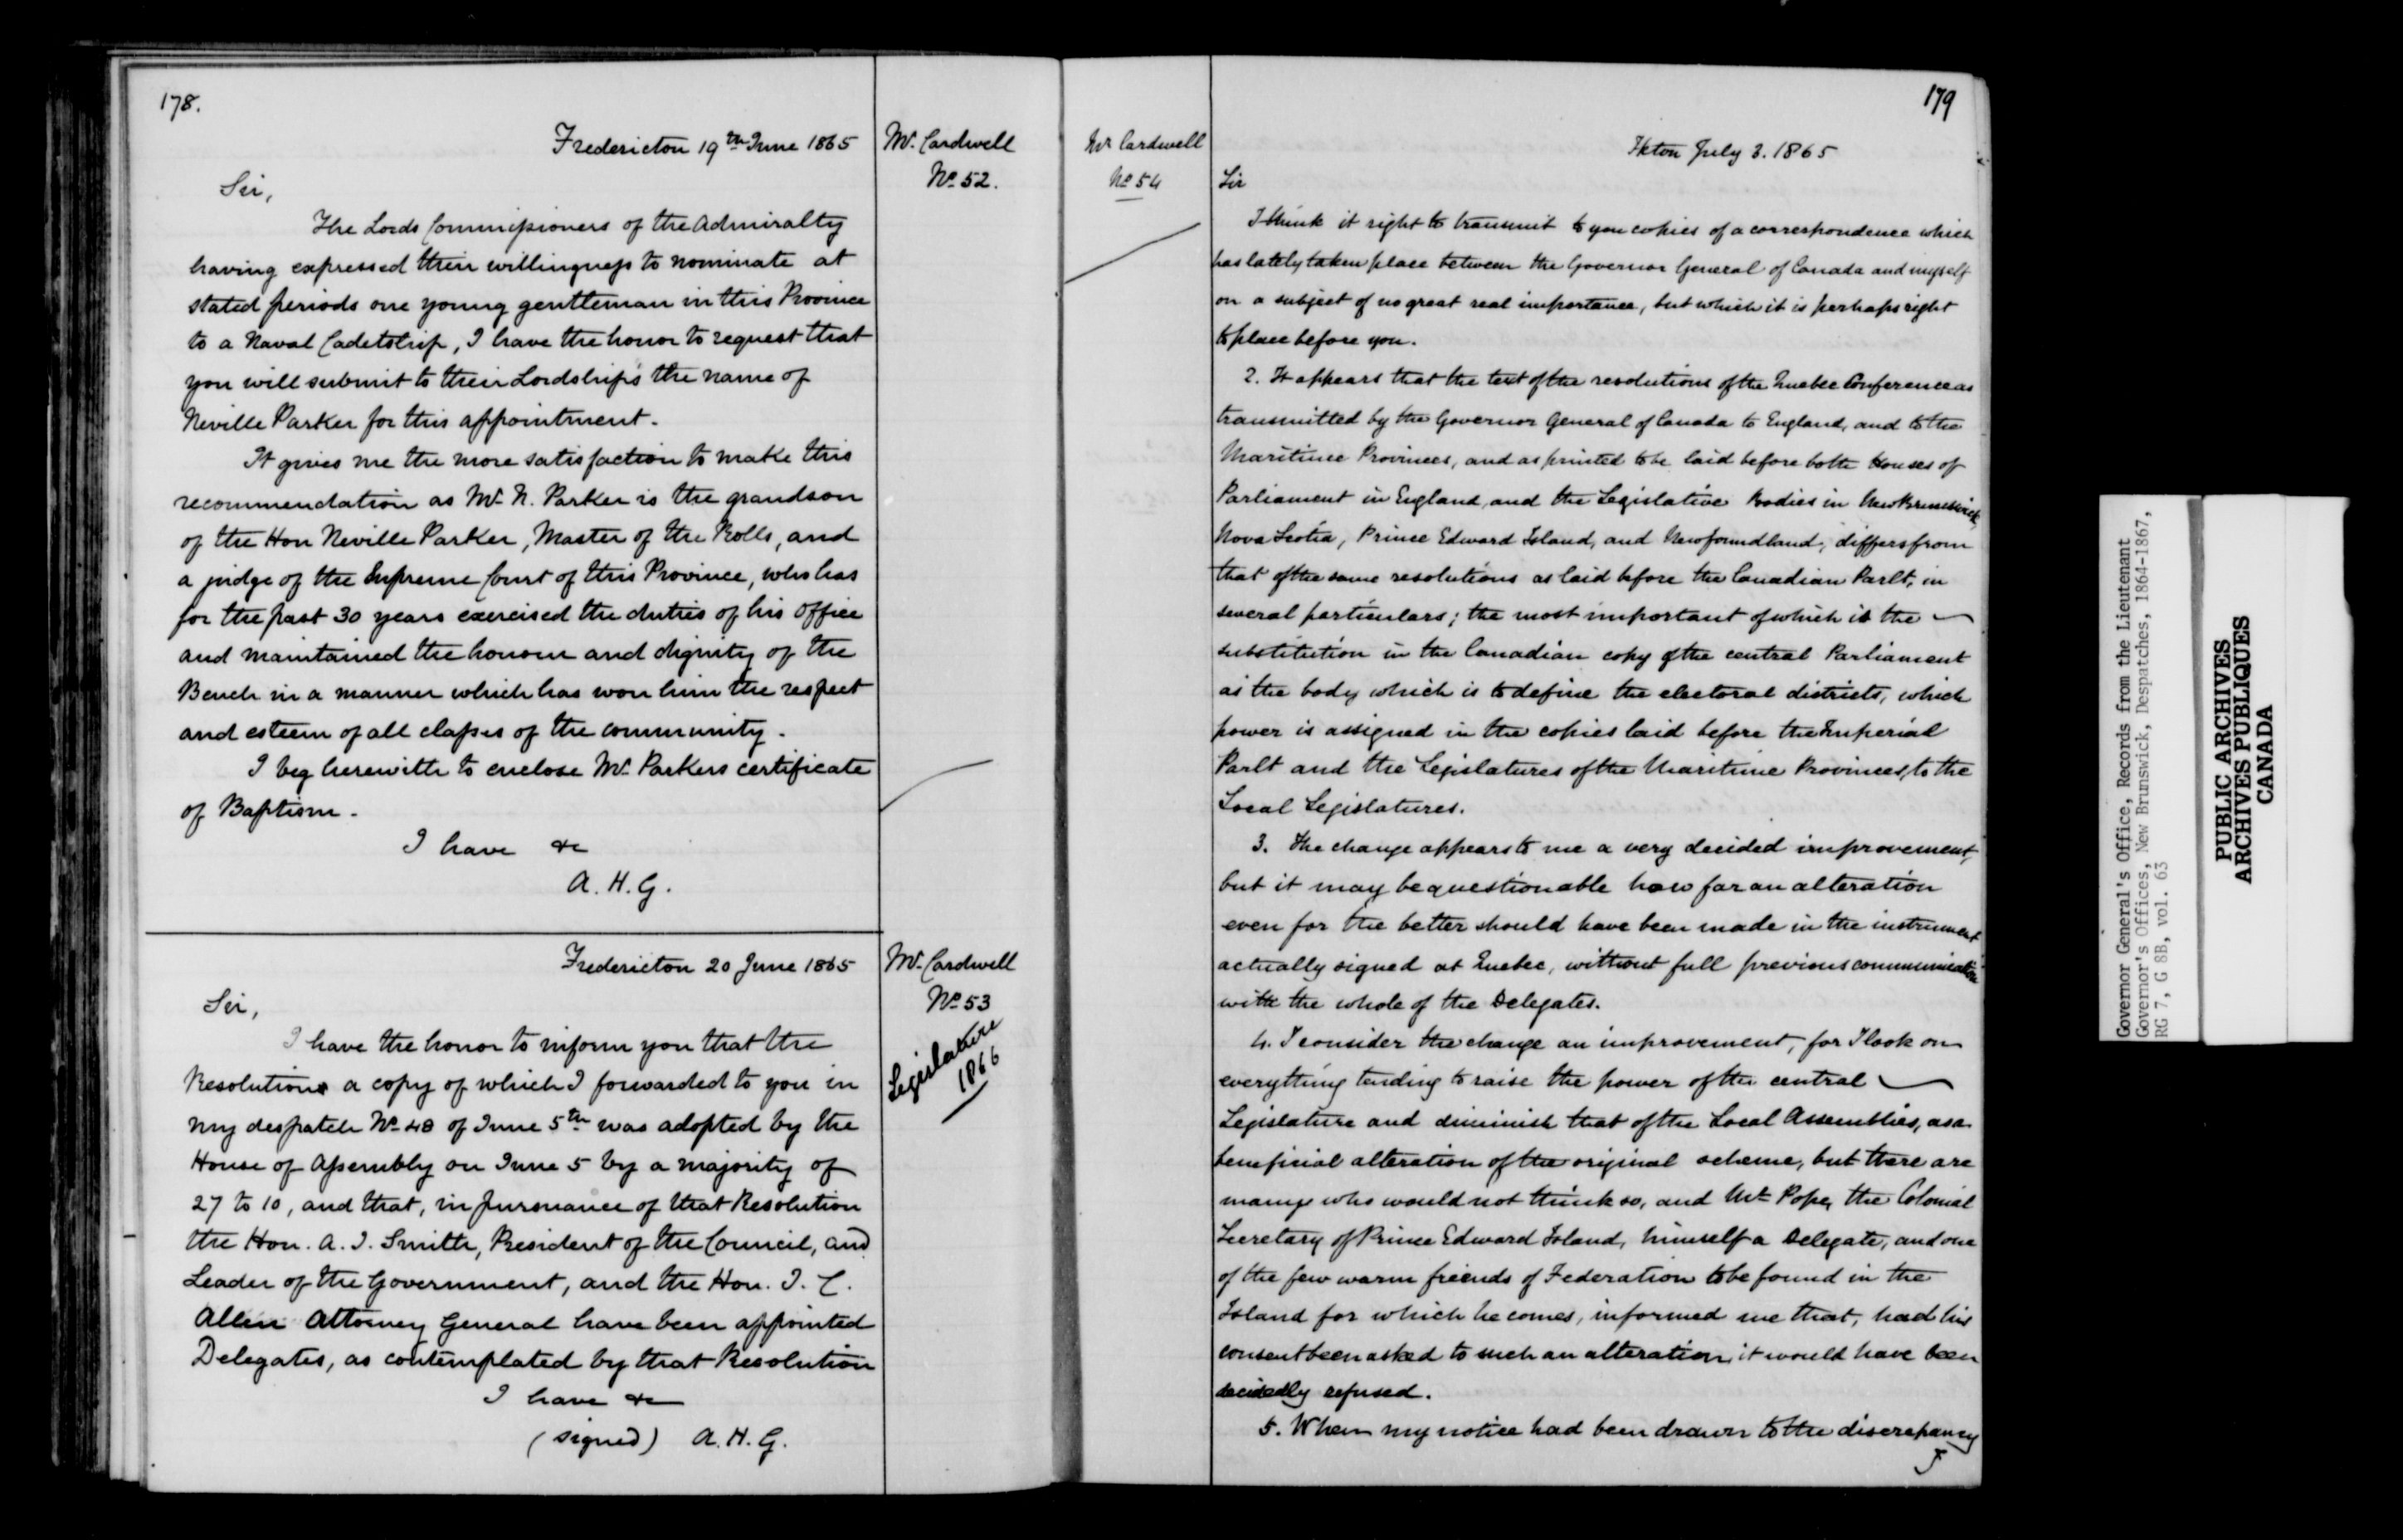 178.
Fredericton 19th June 1865
Mr. Cardwell
No 52.
Sir,
The Lords Commissioners of the Admiralty
having expressed their willingness to nominate at
stated periods one young gentleman in this Province
to a Naval Cadetship, I have the honor to request that
you will submit to their Lordships the name of
Neville Parker for this appointment.
It gives me the more satisfaction to make this
recommendation as Mr. N. Parker is the grandson
of the Hon Neville Parker, Master of the Rolls, and
a judge of the Supreme Court of this Province, who has
for the past 30 years exercised the duties of his office
and maintained the honour and dignity of the
Bench in a manner which has won him the respect
and esteem of all classes of the community.
I beg herewith to enclose Mr. Parkers certificate
of Baptism.
I have &c
A. H. G.
Fredericton 20 June 1865
Mr. Cardwell
No 53
Legislature
1866
Sir,
I have the honor to inform you that the
Resolutions a copy of which I forwarded to you in
my despatch No 48 of June 5th was adopted by the
House of Assembly on June 5 by a majority of
27 to 10, and that, in pursuance of that Resolution
the Hon. A. J. Smith, President of the Council, and
Leader of the Government, and the Hon. J. C.
Allen Attorney General have been appointed
Delegates, as contemplated by that Resolution
I have &c
(signed) A. H. G.
179
Mr Cardwell
No 54
Fkton July 3. 1865
Sir
I think it right to transmit to you copies of a correspondence which
has lately taken place between the Governor General of Canada and myself
on a subject of no great real importance, but which it is perhaps right
to place before you.
2. It appears that the text of the resolutions of the Quebec Conference as
transmitted by the Governor General of Canada to England, and to the
Maritime Provinces, and as printed to be laid before both Houses of
Parliament in England, and the Legislative Bodies in New Brunswick,
Nova Scotia, Prince Edward Island, and Newfoundland, differs from
that of the same resolutions as laid before the Canadian Parlt, in
several particulars; the most important of which is the
substitution in the Canadian copy of the central Parliament
as the body which is to define the electoral districts, which
power is assigned in the copies laid before the Imperial
Parlt and the Legislatures of the Maritime Provinces, to the
Local Legislatures.
3. The change appears to me a very decided improvement,
but it may be questionable how far an alteration
even for the better should have been made in the instrument
actually signed at Quebec, without full previous communication
with the whole of the Delegates.
4. I consider the change an improvement, for I look on
everything tending to raise the power of the central
Legislature and diminish that of the Local Assemblies, as a
beneficial alteration of the original scheme, but there are
many who would not think so, and Mr. Pope, the Colonial
Secretary of Prince Edward Island, himself a Delegate, and one
of the few warm friends of Federation to be found in the
Island for which he comes, informed me that, had his
consent been asked to such an alteration, it would have been
decidedly refused.
5. When my notice had been drawn to the discrepancy
Governor General's Office, Records from the Lieutenant
Governor's Offices, New Brunswick, Despatches, 1864-1867,
RG 7, G 8B, vol. 63
PUBLIC ARCHIVES
ARCHIVES PUBLIQUES
CANADA